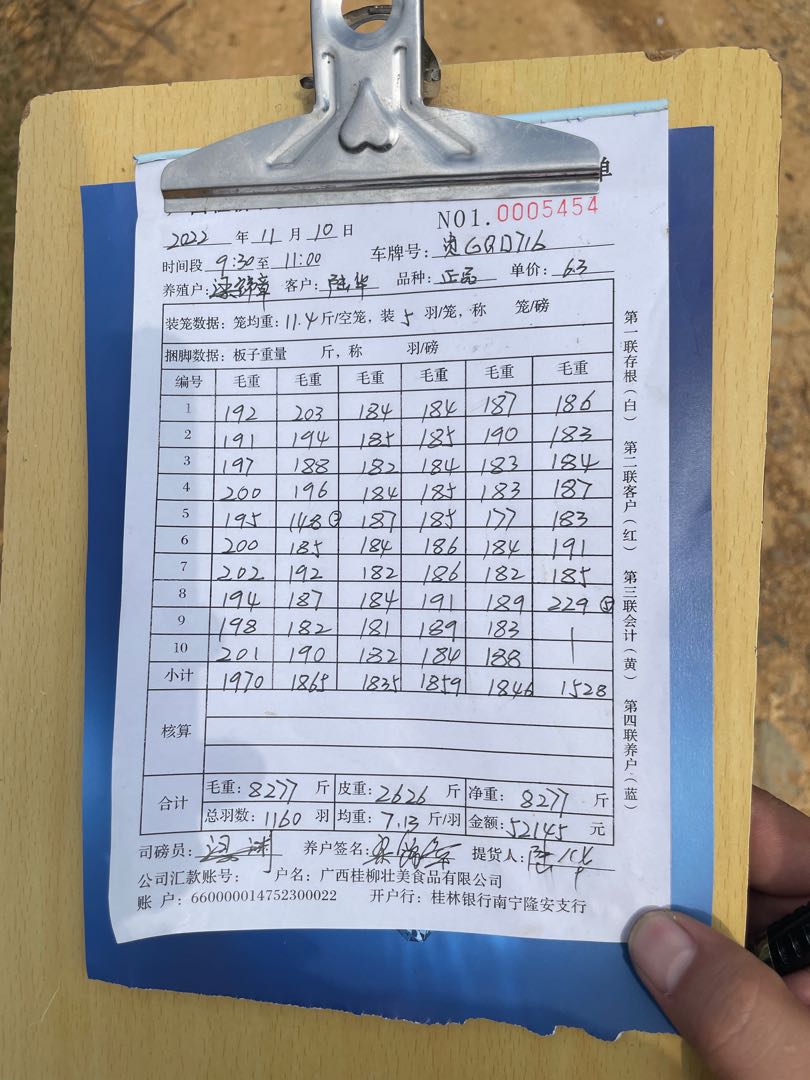 单
NO1.0005454
2022 年 11 月 10 日
车牌号:贵GQD716
时间段 9:30 至 11:00
养殖户: 客户:陆华 品种:正品 单价:6.3
装笼数据:笼均重:11.4斤/空笼,装 5 羽/笼,称 笼/磅
捆脚数据:板子重量 斤,称 羽/磅
编号 毛重 毛重 毛重 毛重 毛重 毛重
1 192 203 184 184 187 186
2 191 194 185 185 190 183
3 197 188 182 184 183 184
4 200 196 184 185 183 187
5 195 148③ 187 185 177 183
6 200 185 184 186 184 191
7 202 192 182 186 182 185
8 194 187 184 191 189 229⑤
9 198 182 181 189 183
10 201 190 182 184 188
小计 1970 1865 1835 1859 1846 1528
核算
合计
毛重:8277 斤 皮重:2626 斤 净重:8277 斤
总羽数:1160 羽 均重:7.13 斤/羽 金额:52145 元
司磅员: 养户签名: 提货人:
公司汇款账号: 户名:广西桂柳壮美食品有限公司
账 户:660000014752300022 开户行:桂林银行南宁隆安支行
第一联存根(白) 第二联客户(红) 第三联会计(黄) 第四联养户(蓝)